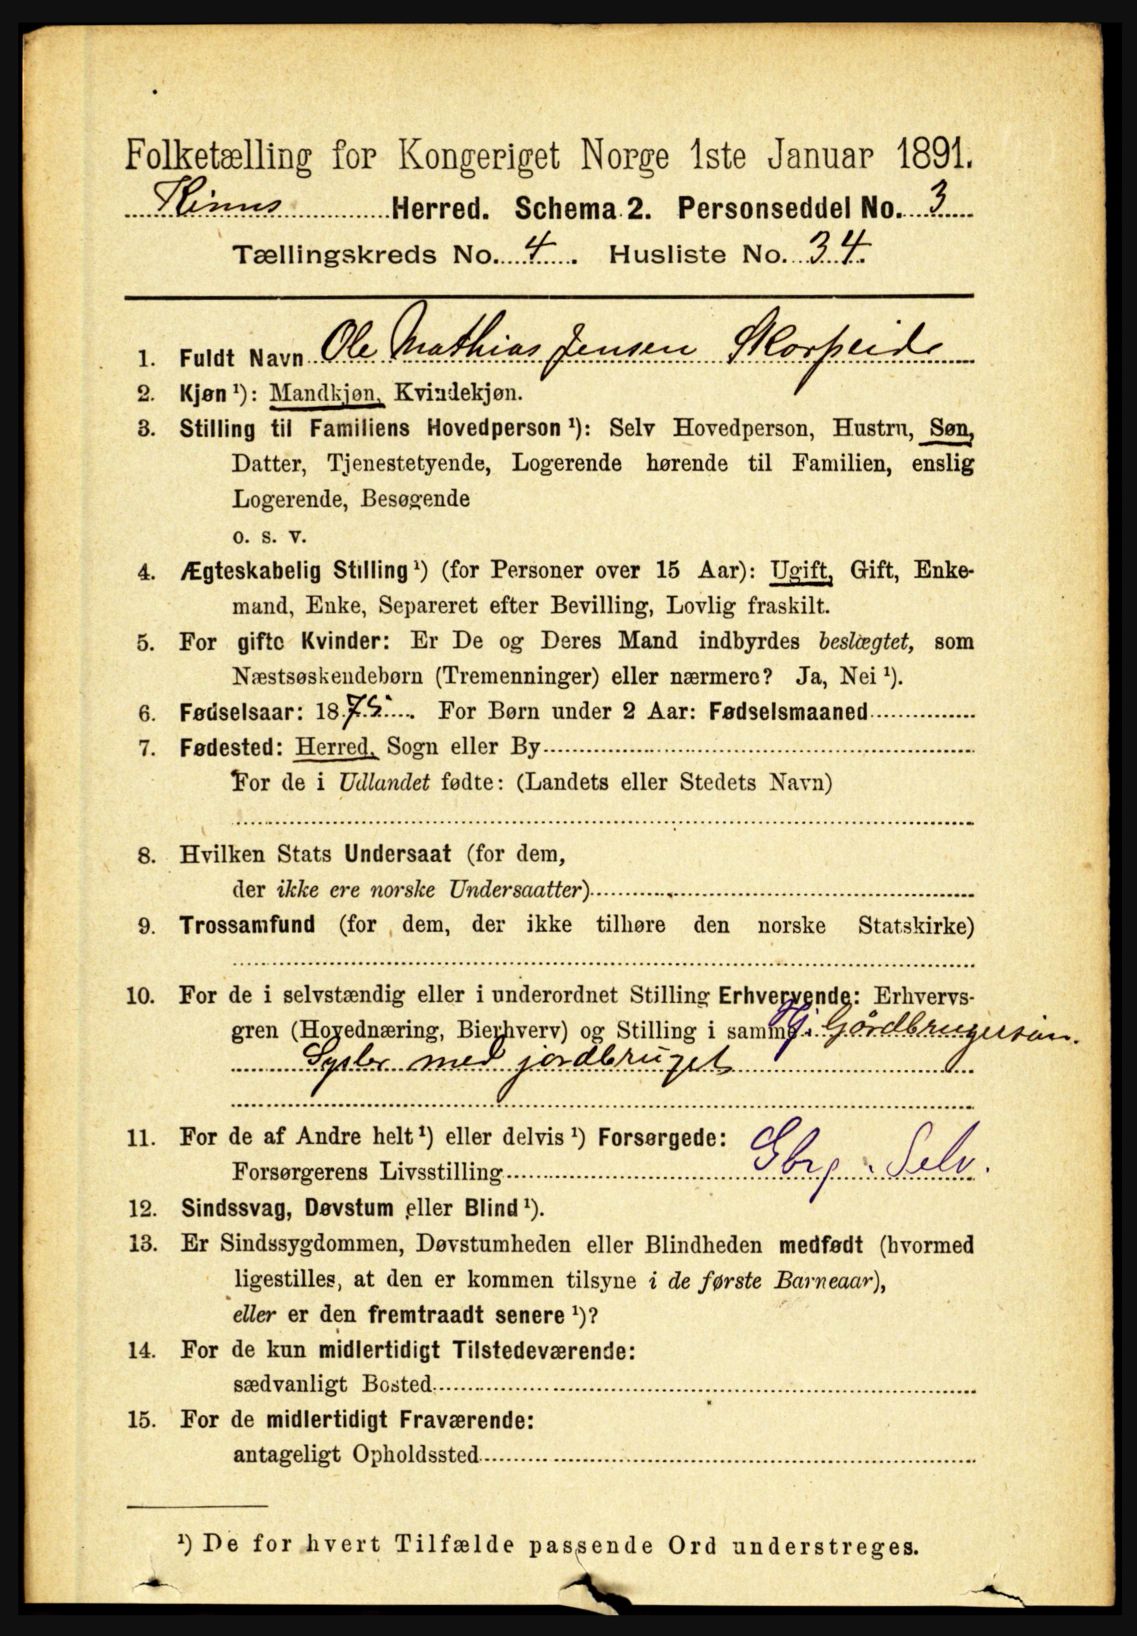 Folketælling for Kongeriget Norge 1ste Januar 1891.
Kinns Herred. Schema 2. Personseddel No. 3
Tællingskreds No. 4. Husliste No. 34.
1. Fuldt Navn Ole Mathias Jensen Skorpeide
2. Kjøn ¹): Mandkjøn, Kvindekjøn.
3. Stilling til Familiens Hovedperson ¹): Selv Hovedperson, Hustru, Søn,
Datter, Tjenestetyende, Logerende hørende til Familien, enslig
Logerende, Besøgende
o. s. v.
4. Ægteskabelig Stilling ¹) (for Personer over 15 Aar): Ugift, Gift, Enke-
mand, Enke, Separeret efter Bevilling, Lovlig fraskilt.
5. For gifte Kvinder: Er De og Deres Mand indbyrdes beslægtet, som
Næstsøskendebørn (Tremenninger) eller nærmere? Ja, Nei ¹).
6. Fødselsaar: 1875. For Børn under 2 Aar: Fødselsmaaned
7. Fødested: Herred, Sogn eller By
For de i Udlandet fødte: (Landets eller Stedets Navn)
8. Hvilken Stats Undersaat (for dem,
der ikke ere norske Undersaatter)
9. Trossamfund (for dem, der ikke tilhøre den norske Statskirke)
10. For de i selvstændig eller i underordnet Stilling Erhvervende: Erhvervs-
gren (Hovednæring, Bierhverv) og Stilling i samme Hj Gårdbrugersøn.
Sysler med jordbruget
11. For de af Andre helt ¹) eller delvis ¹) Forsørgede:
Forsørgerens Livsstilling Gbr. Selv.
12. Sindssvag, Døvstum eller Blind ¹).
13. Er Sindssygdommen, Døvstumheden eller Blindheden medfødt (hvormed
ligestilles, at den er kommen tilsyne i de første Barneaar),
eller er den fremtraadt senere ¹)?
14. For de kun midlertidigt Tilstedeværende:
sædvanligt Bosted
15. For de midlertidigt Fraværende:
antageligt Opholdssted
¹) De for hvert Tilfælde passende Ord understreges.